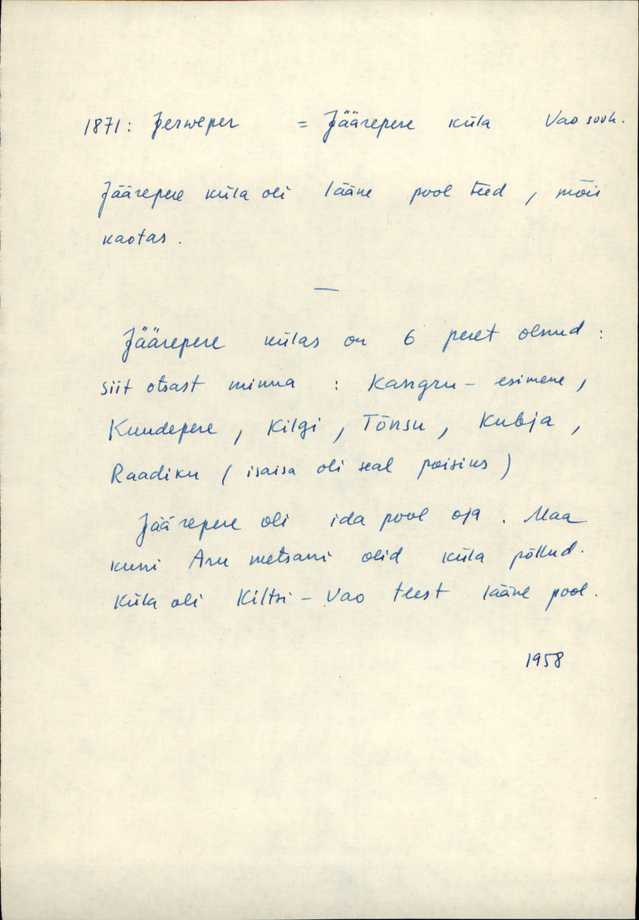 1871: Jerweper = Jäärepere küla Vao
Jäärepere küla oli lääne pool teed, mõis
kaotas.
—
Jäärepere külas on 6 peret olnud:
siit otsast minna: Kangru - esimene,
Kuudepere, Kilgi, Tõnsu, Kubja,
Raadiku (isaisa oli seal poisiks)
Jäärepere oli ida pool oja. Maa
kuni Aru metsani olid küla põllud.
Küla oli Kiltsi - Vao teest lääne pool.
1958